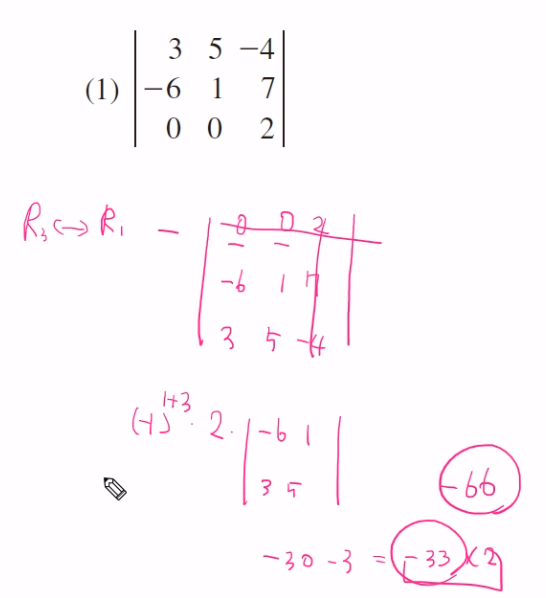 (1) | 3 5 −4 |
| −6 1 7 |
| 0 0 2 |
R₃ ↔ R₁ − | 0 0 2 |
| -6 1 7 |
| 3 5 -4 |
(-1)¹⁺³ · 2 · | -6 1 |
| 3 5 |
-66
-30 -3 = -33 × 2